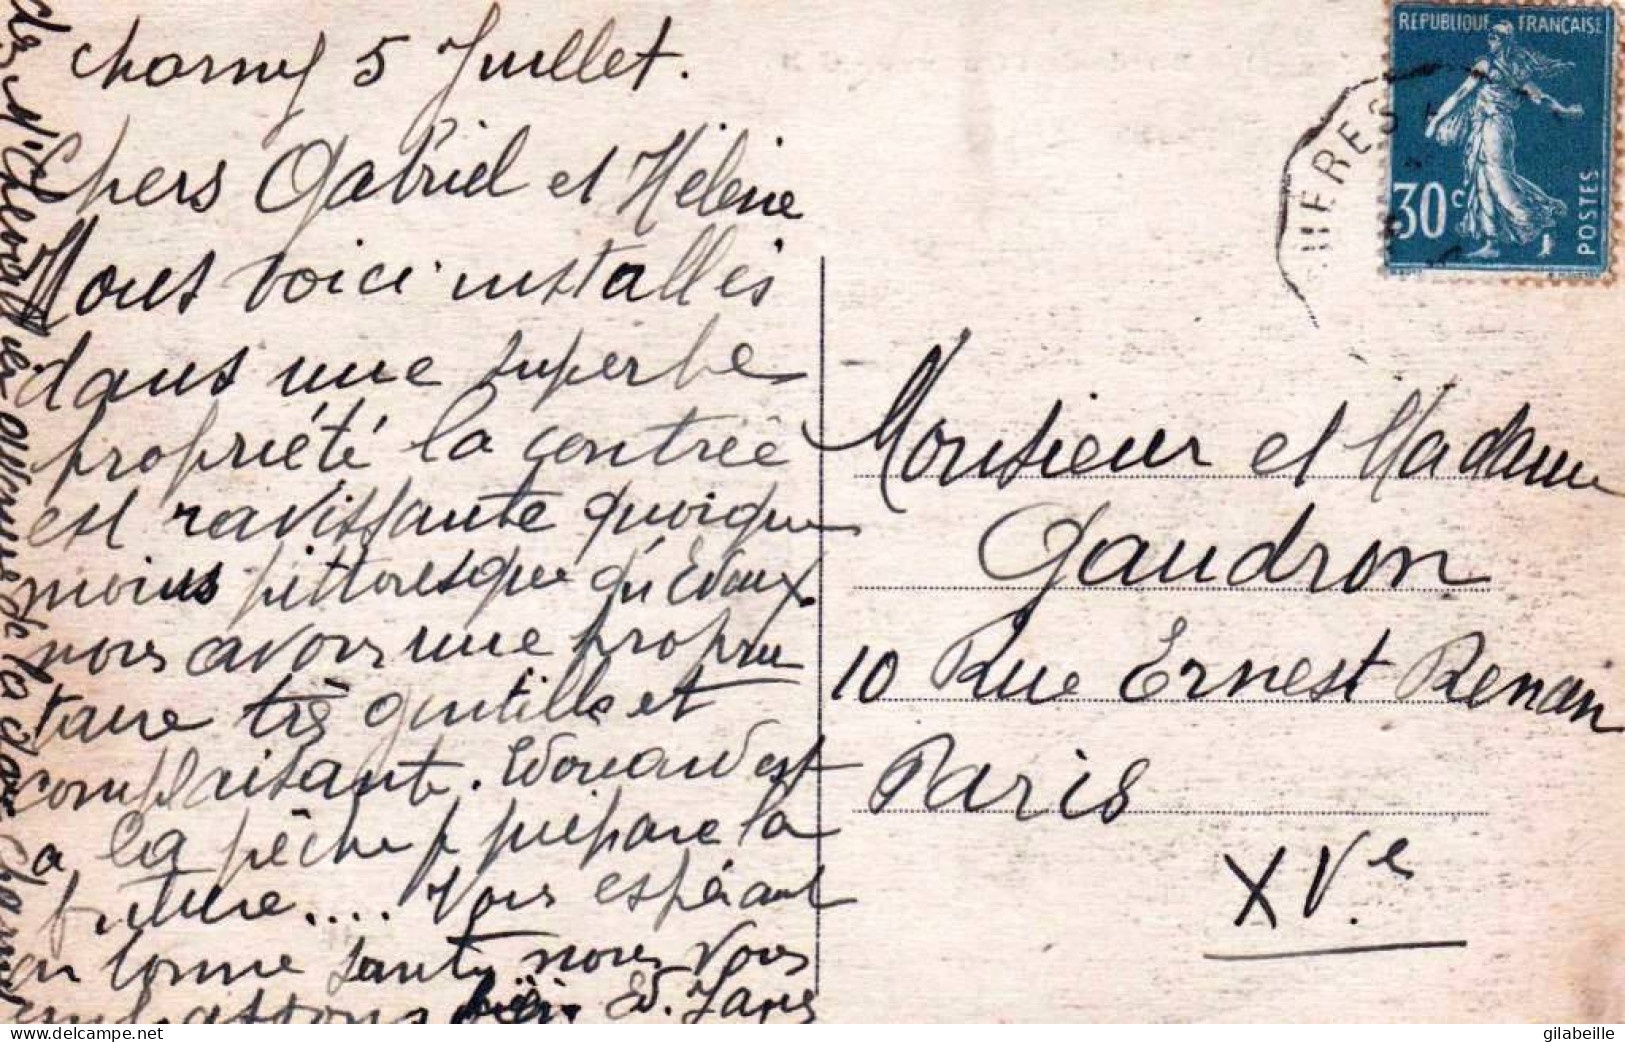 Charny 5 Juillet.
Chers Gabriel et Hélène
Nous voici installés
dans une superbe
propriété la contrée
est ravissante quoique
moins pittoresque qu'Evaux.
nous avons une proprié
taire très gentille et
complaisante. Edouard est
a la pêche prépare la
friture.... Vous espérant
en bonne santé, nous vous
embrassons bien Ed.
avenue de la Gare Charny
RÉPUBLIQUE FRANÇAISE
30c
POSTES
HERES
Monsieur et Madame
Gaudron
10 Rue Ernest Renan
Paris
XVe
delcampe.net
gilabeille